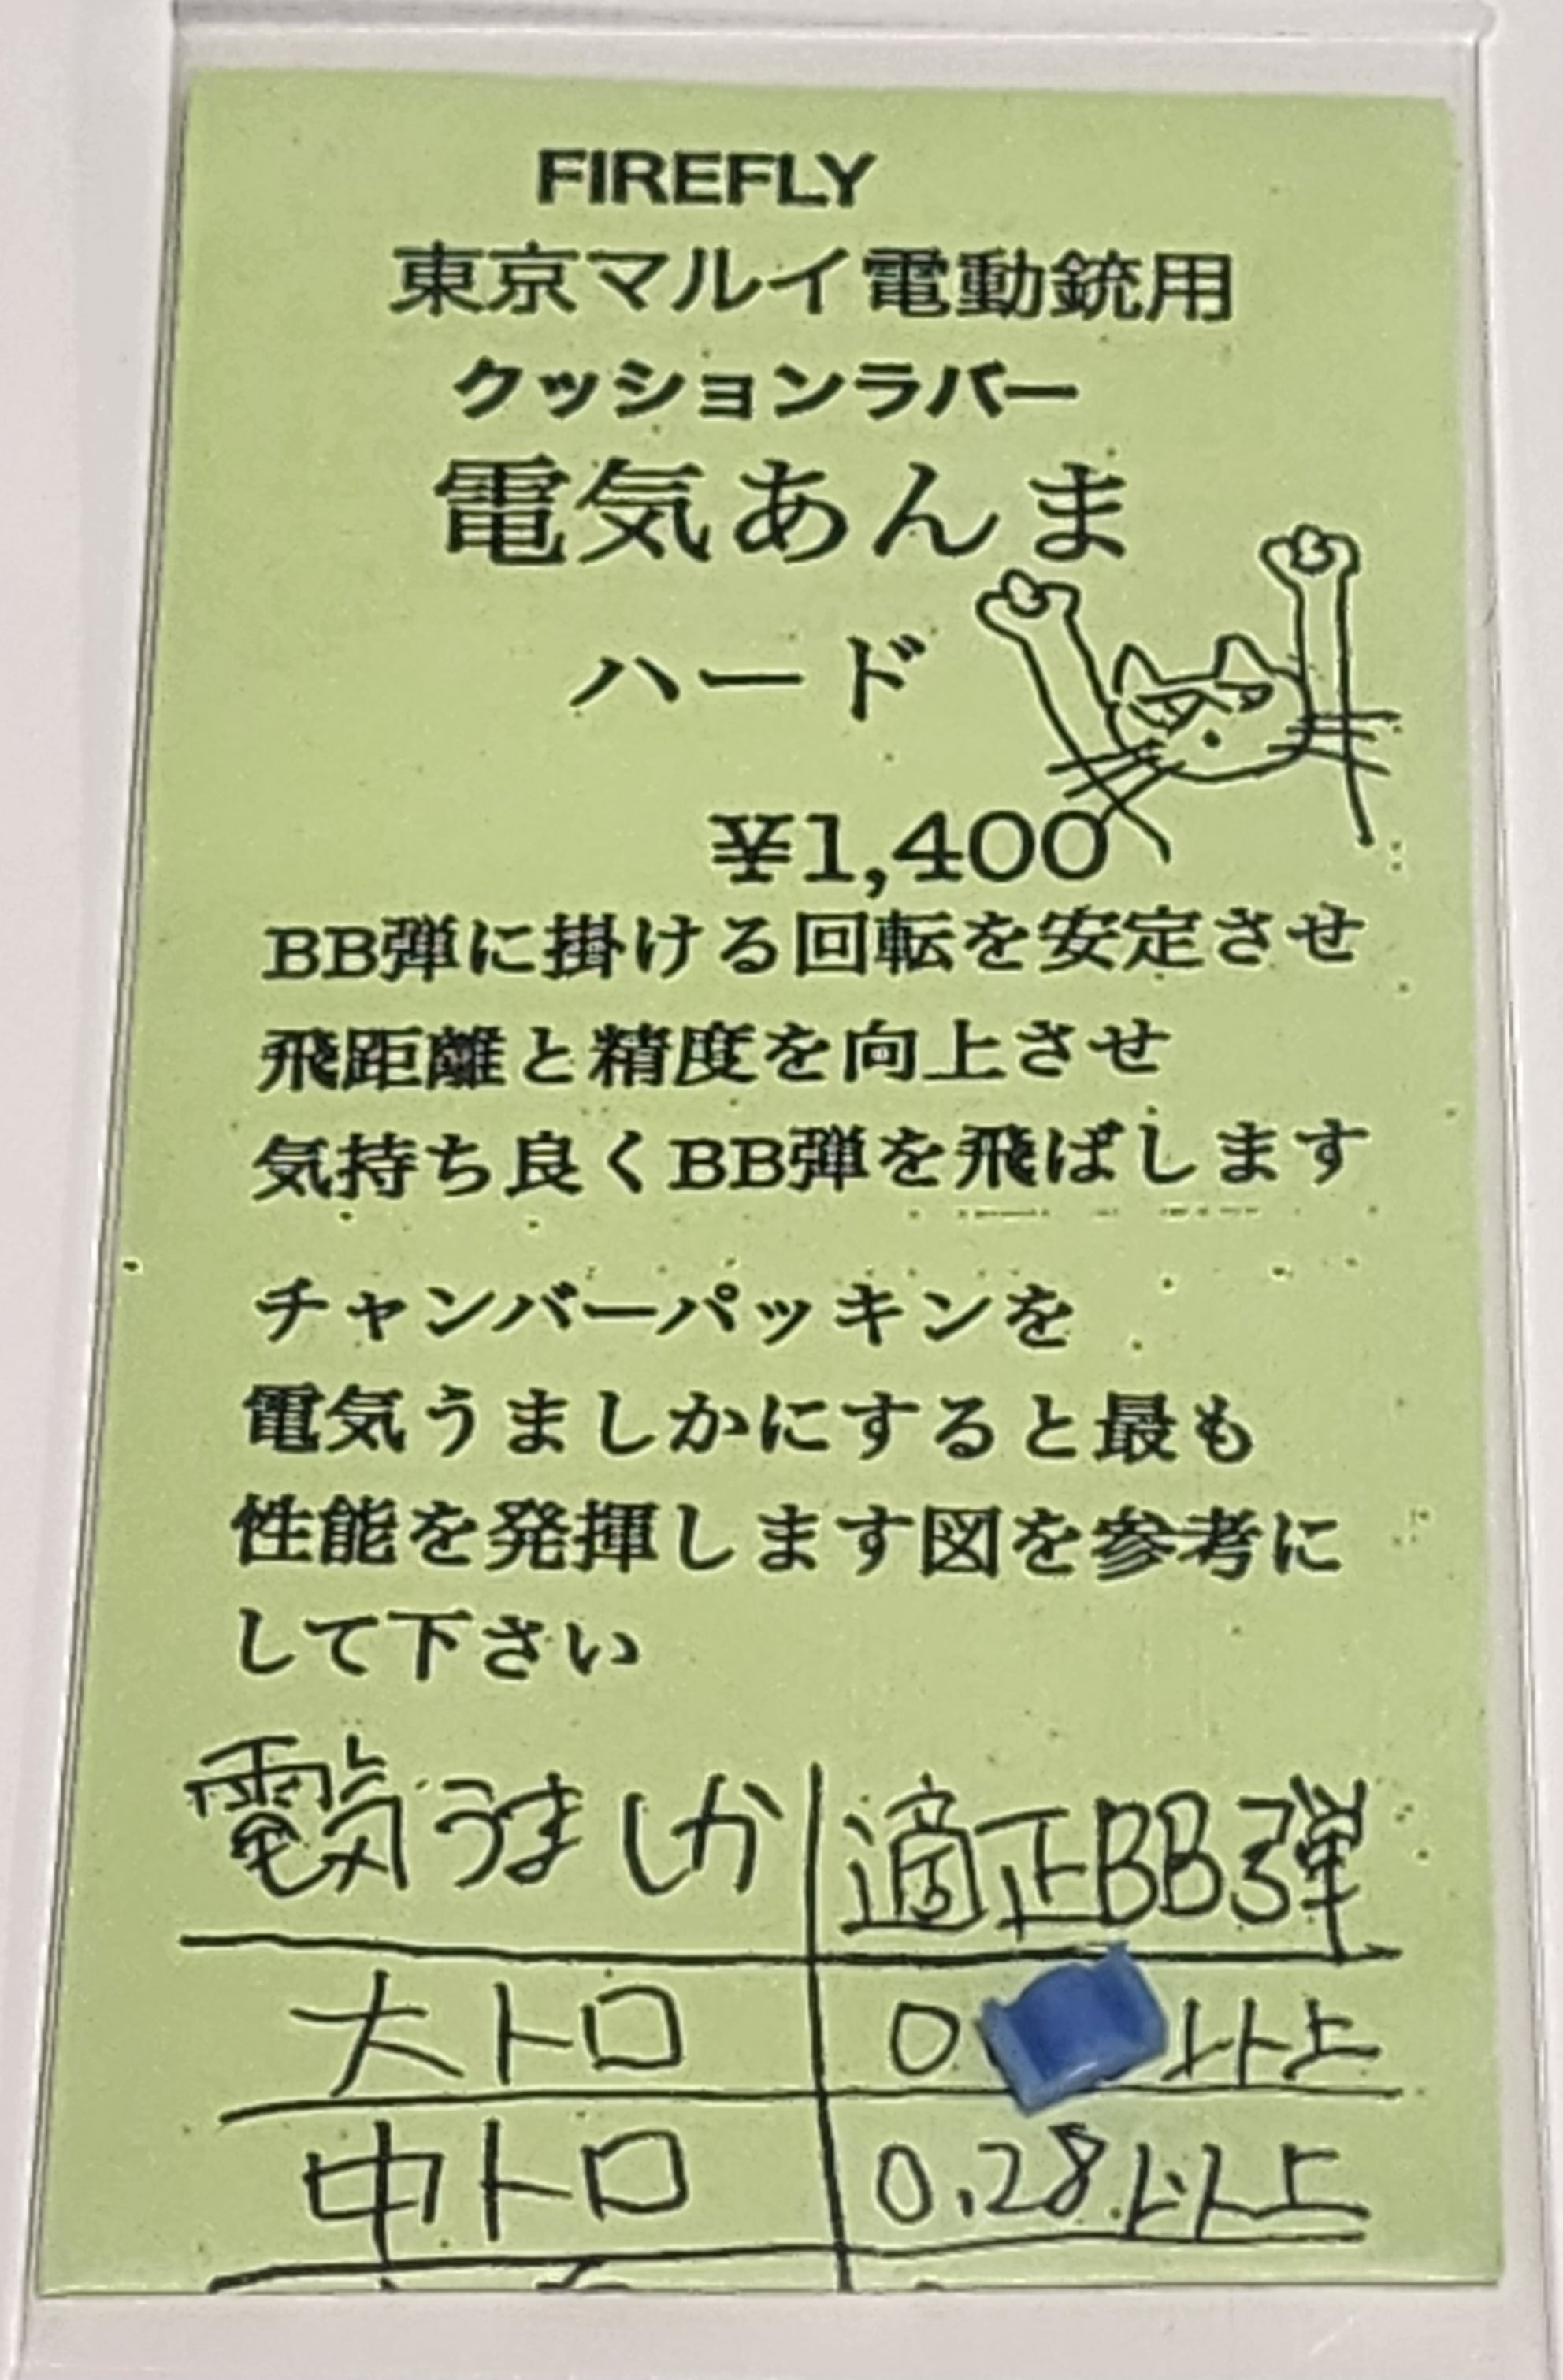 FIREFLY
東京マルイ電動銃用
クッションラバー
電気あんま
ハード
¥1,400
BB弾に掛ける回転を安定させ
飛距離と精度を向上させ
気持ち良くBB弾を飛ばします
チャンバーパッキンを
電気うましかにすると最も
性能を発揮します図を参考に
して下さい
電気うましか 適正BB弾
大トロ 以上
中トロ 0.28以上